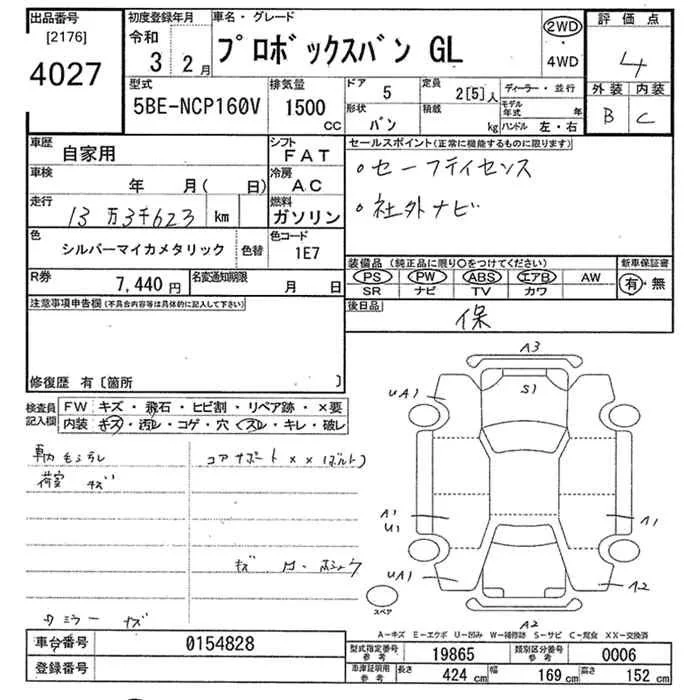 出品番号
[2176]
4027
初度登録年月
令和
3 2月
車名・グレード
プロボックスバン GL
2WD
・
4WD
評価点
4
外装 内装
B C
型式
5BE-NCP160V
排気量
1500 CC
ドア 5
定員 2[5]人
形状 バン
積載 kg
ディーラー・並行
モデル年式 年
ハンドル 左・右
車歴 自家用
シフト FAT
車検 年 月( 日)
冷房 AC
走行 13万3千623 km
燃料 ガソリン
色 シルバーマイカメタリック 色替
色コード 1E7
R券 7,440円
名変通知期限 月 日
セールスポイント(正常に機能するものに限ります)
。セーフティセンス
。社外ナビ
装備品(純正品に限り○をつけてください)
PS PW ABS エアB AW
SR ナビ TV カワ
新車保証書
有・無
後日品
保
注意事項申告欄(不具合内容等は具体的に記入して下さい)
修復歴 有〔箇所 〕
検査員記入欄
FW キズ・飛石・ヒビ割・リペア跡・×要
内装 キズ・汚レ・コゲ・穴・スレ・キレ・破レ
荷室 キズ
コアサポート××(ボルト)
ミラー キズ
A3
S1
UA1
A1
U1
A1
UA1
A2
A2
スペア
A-キズ E-エクボ U-凹み W-補修跡 S-サビ C-腐食 XX-交換済
車台番号 0154828
登録番号
型式指定番号参考 19865
類別区分番号参考 0006
車庫証明用参考 長さ 424 cm 幅 169 cm 高さ 152 cm